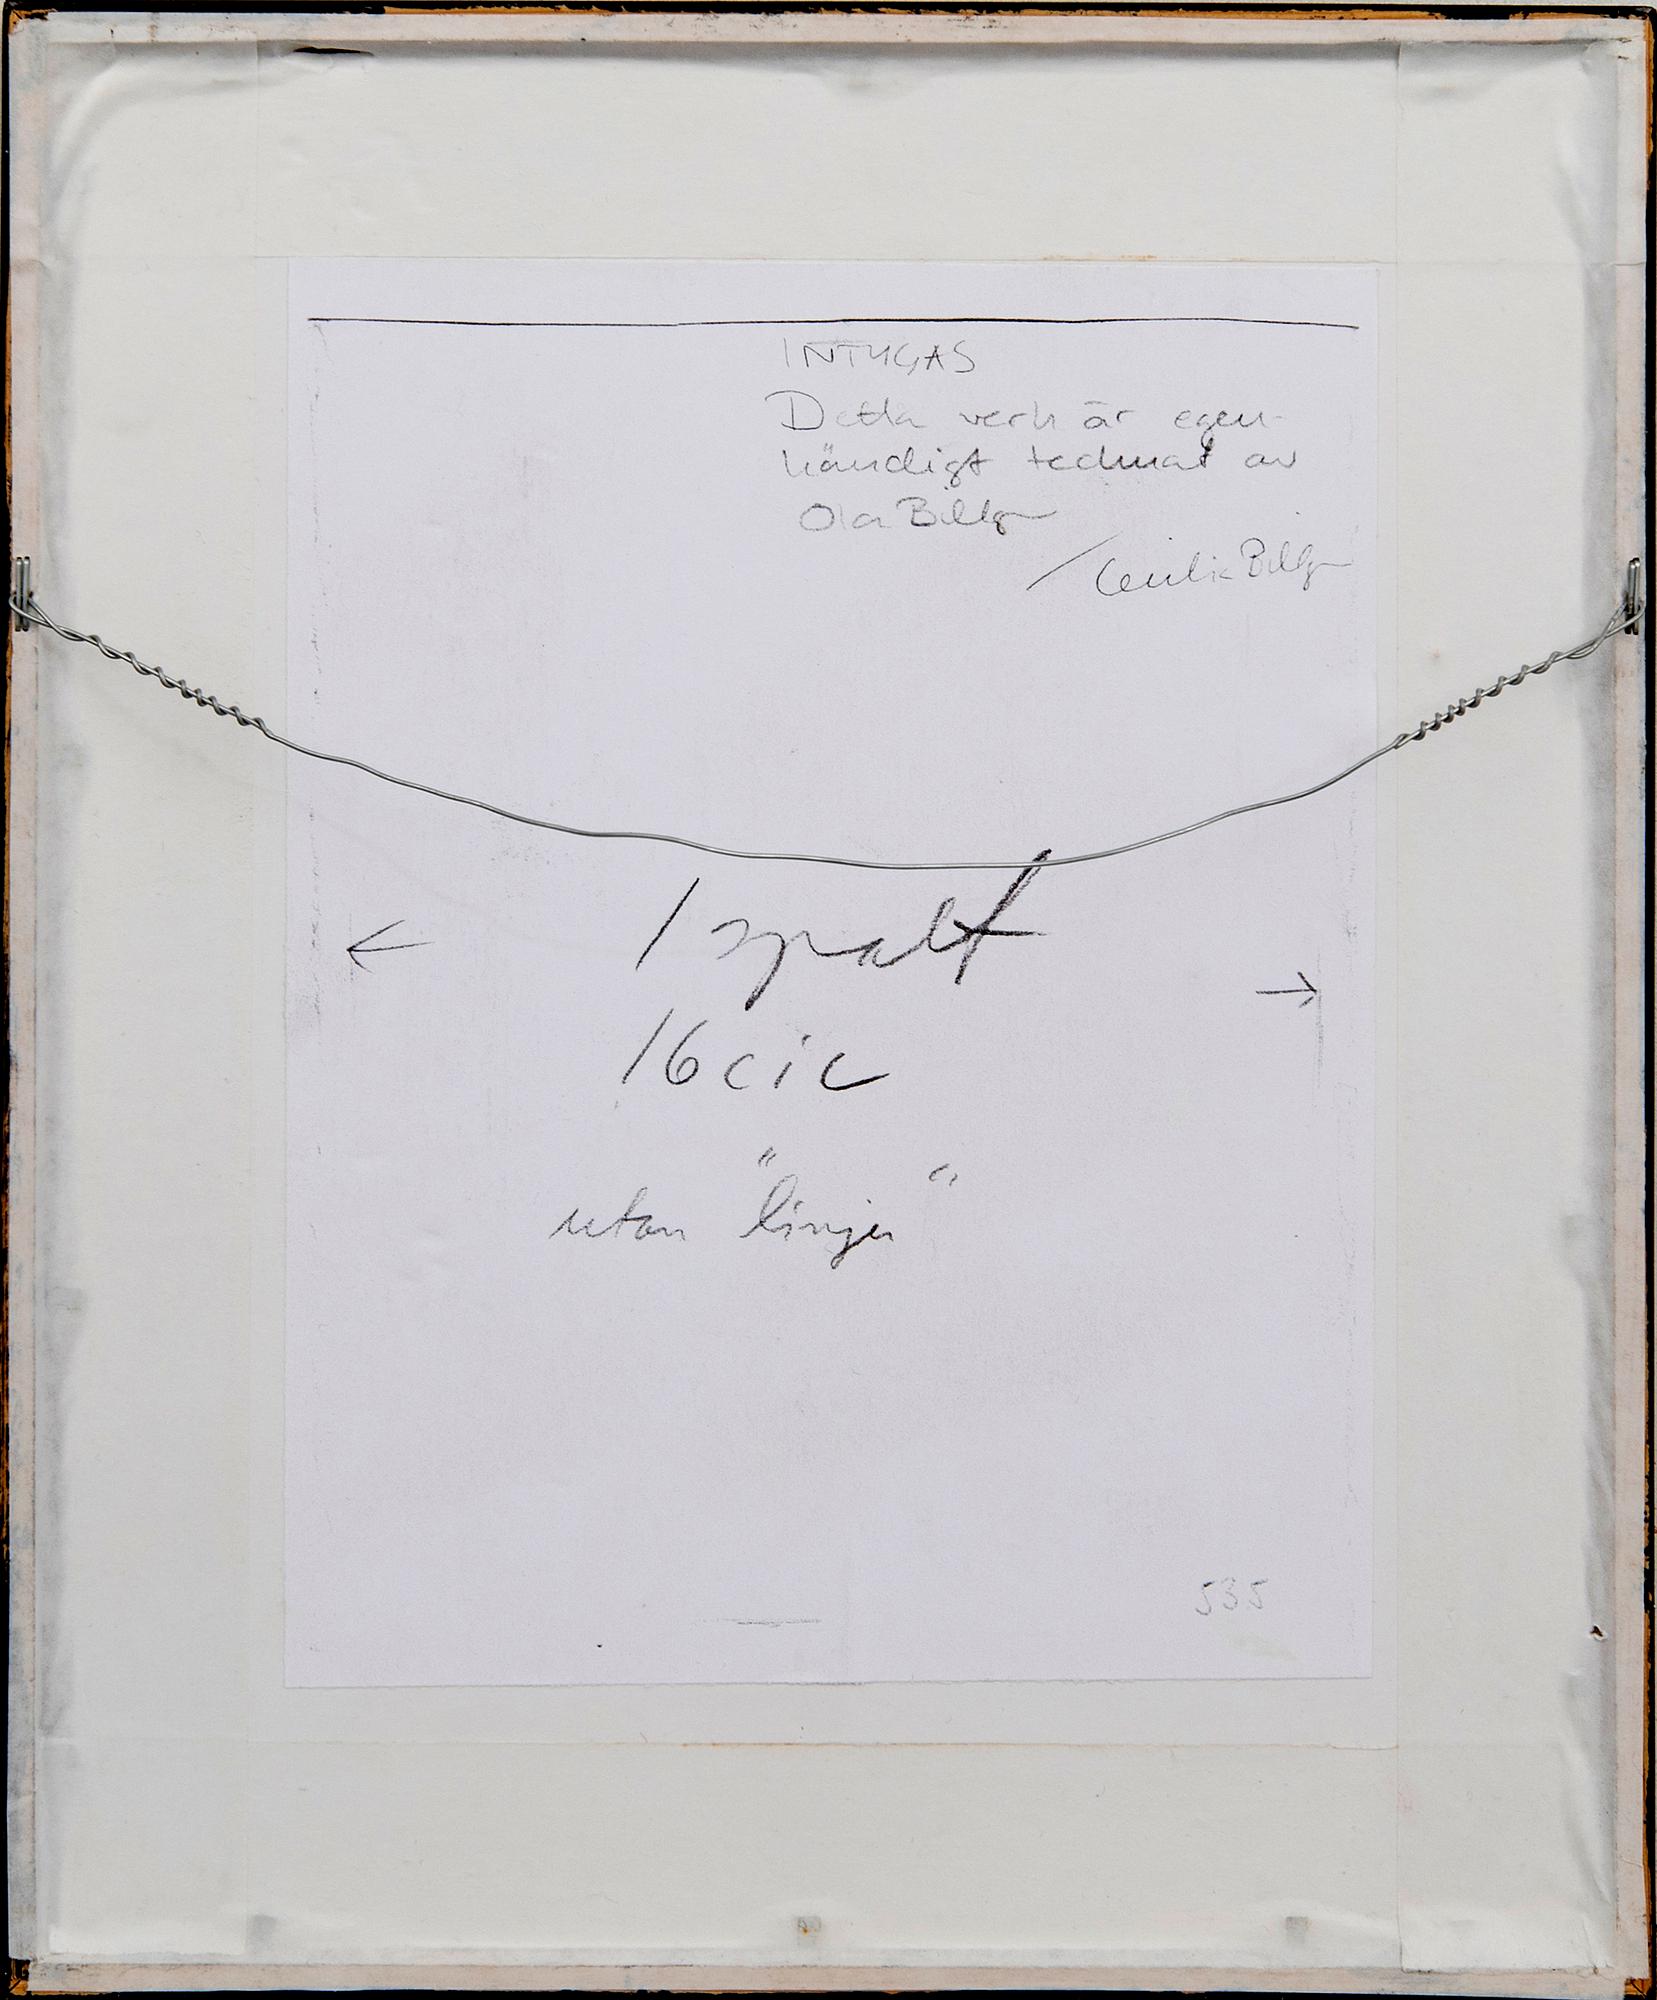 INTYGAS
Detta verk är egen-
händigt tecknat av
Ola Billgren
/Cecilia Billgren
← 1 spalt →
16 cic
utan "linjer"
535